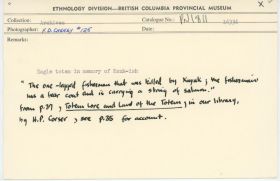 ETHNOLOGY DIVISION—BRITISH COLUMBIA PROVINCIAL MUSEUM X
Collection: Archives Catalogue No.: PN 1811
Photographer: #125
Remarks:
Eagle totem in memory of
"The one-legged fisherman that was killed by Kayak; the fisherman
has a bear coat and is carrying a string of salmon."
from p.39, Totem Lore and Land of the Totem; in our library,
by H.P. Corser; see p.35 for account.